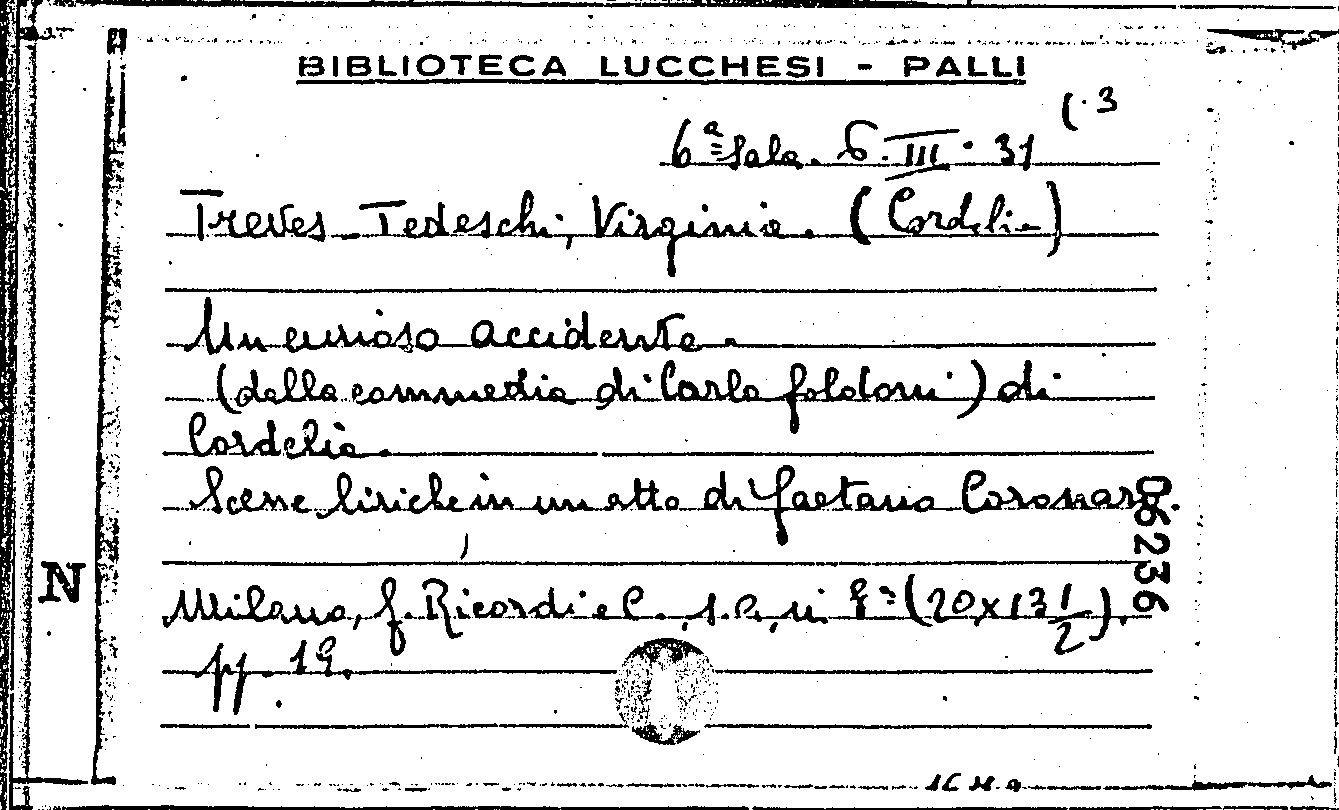 BIBLIOTECA LUCCHESI - PALLI
(. 3
6ª Sala. 6. III. 31
Treves-Tedeschi, Virginia. (Cordelia)
Un curioso accidente.
(dalla commedia di Carlo Goldoni) di
Cordelia.
Scene liriche in un atto di Gaetano Coronaro.
06236
N
Milano, G. Ricordi e C., s.a., in 8º (20x13 1/2).
pp. 19.